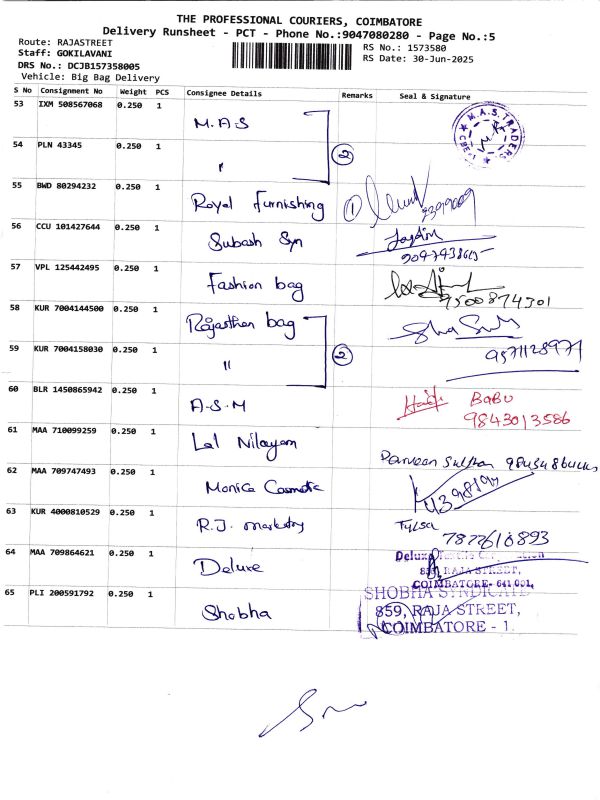 THE PROFESSIONAL COURIERS, COIMBATORE
Delivery Runsheet - PCT - Phone No.:9047080280 - Page No.:5
Route: RAJASTREET
Staff: GOKILAVANI
DRS No.: DCJB157358005
Vehicle: Big Bag Delivery
RS No.: 1573580
RS Date: 30-Jun-2025
S No Consignment No Weight PCS Consignee Details Remarks Seal & Signature
53 IXM 508567068 0.250 1 M.A.S M.A.S. TRADERS
54 PLN 43345 0.250 1 " 2
55 BWD 80294232 0.250 1 Royal Furnishing 1
56 CCU 101427644 0.250 1 Subash Syn
57 VPL 125442495 0.250 1 Fashion bag 9500874301
58 KUR 7004144500 0.250 1 Rajasthan bag
59 KUR 7004158030 0.250 1 " 2 9571128971
60 BLR 1450865942 0.250 1 A.S.M BABU
9843013586
61 MAA 710099259 0.250 1 Lal Nilayam
62 MAA 709747493 0.250 1 Monica Cosmetic
63 KUR 4000810529 0.250 1 R.J. marketry Tylsa
64 MAA 709864621 0.250 1 Deluxe Deluxe
RAJA STREET,
COIMBATORE- 641 001.
65 PLI 200591792 0.250 1 Shobha SHOBHA SYNDICATE
859, RAJA STREET,
COIMBATORE - 1.